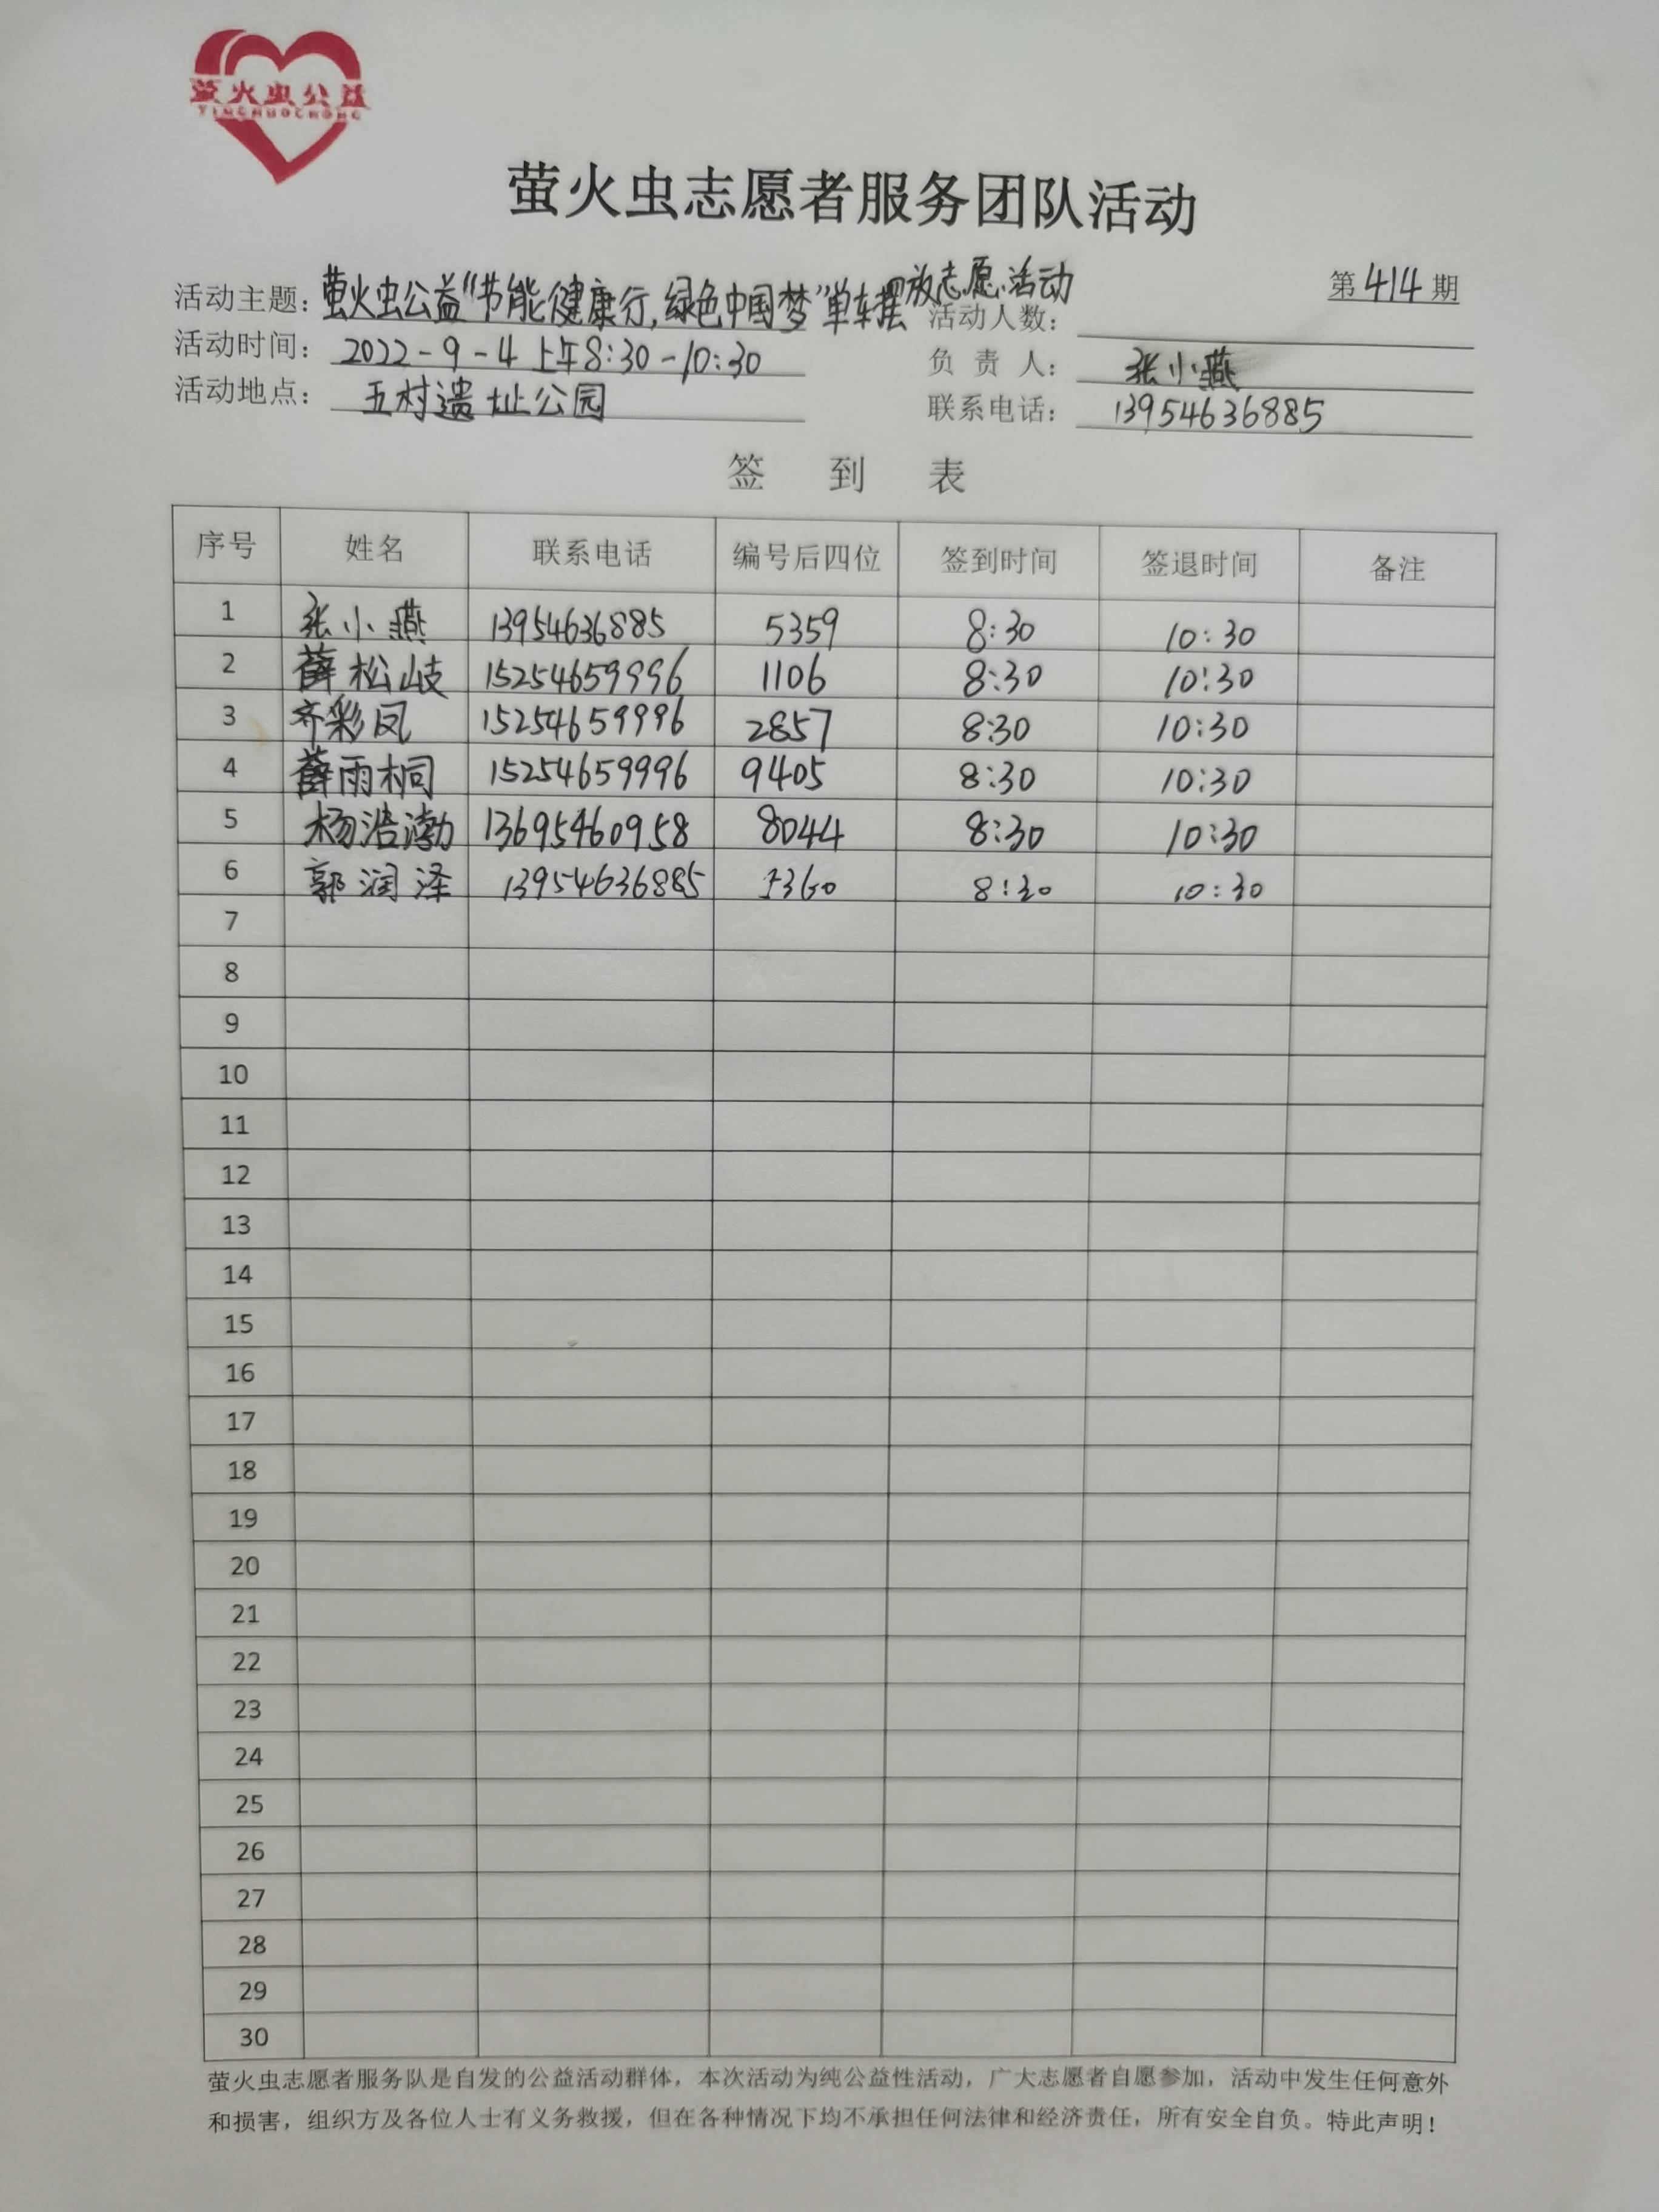 萤火虫公益
YINGHUOCHONG
萤火虫志愿者服务团队活动
第414期
活动主题：萤火虫公益“节能健康行，绿色中国梦”单车摆放志愿活动
活动人数：
活动时间：2022-9-4上午8:30-10:30
负责人：张小燕
活动地点：五村遗址公园
联系电话：13954636885
签到表
序号 姓名 联系电话 编号后四位 签到时间 签退时间 备注
1 张小燕 13954636885 5359 8:30 10:30
2 薛松岐 15254659996 1106 8:30 10:30
3 齐彩凤 15254659996 2857 8:30 10:30
4 薛雨桐 15254659996 9405 8:30 10:30
5 杨浩渤 13695460958 8044 8:30 10:30
6 郭润泽 13954636885 5360 8:30 10:30
7
8
9
10
11
12
13
14
15
16
17
18
19
20
21
22
23
24
25
26
27
28
29
30
萤火虫志愿者服务队是自发的公益活动群体，本次活动为纯公益性活动，广大志愿者自愿参加，活动中发生任何意外
和损害，组织方及各位人士有义务救援，但在各种情况下均不承担任何法律和经济责任，所有安全自负。特此声明！